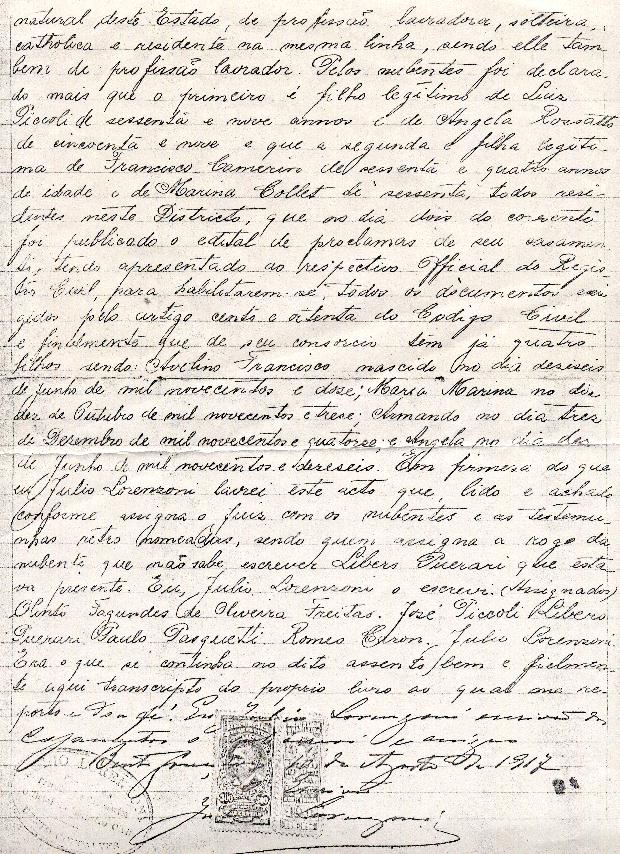 natural deste Estado, de profissão lavradora, solteira,
catholica e residente na mesma linha, sendo elle tam
bem de profissão lavrador. Pelos nubentes foi declara
do mais que o primeiro é filho legitimo de Luiz
Piccoli de sessenta e nove annos e de Angela Rossatto
de cincoenta e nove e que a segunda e filha legiti
ma de Francisco Camerini de sessenta e quatro annos
de idade e de Marina Collet de sessenta, todos resi
dentes neste Districto, que no dia dois do corrente
foi publicado o edital de proclamas de seu casamen
to, tendo apresentado ao respectivo Official do Regis
tro Civil, para habilitarem-se, todos os documentos exi
gidos pelo artigo cento e oitenta do Codigo Civil
e finalmente que de seu consorcio têm já quatro
filhos sendo: Avelino Francisco nascido no dia dezeseis
de Junho de mil novecentos e doze; Maria Marina no dia
dez de Outubro de mil novecentos e treze; Armando no dia trez
de Dezembro de mil novecentos e quatorze; e Angela no dia dez
de Junho de mil novecentos e dezeseis. Em firmesa do que
eu Julio Lorenzoni lavrei este acto que, lido e achado
conforme assigna o Juiz com os nubentes e as testemu
nhas retro nomeadas, sendo quem assigna a rogo da
nubente que não sabe escrever Libero Guerari que esta
va presente. Eu, Julio Lorenzoni o escrevi. (Assignados)
Olinto Fagundes de Oliveira Freitas. José Piccoli Libero
Guerari Paulo Pasquetti Romeo Ceron. Julio Lorenzoni.
Era o que se continha no dito assento, bem e fielmen
te aqui transcripto do proprio livro ao qual me re
porto e dou fé. Eu, Julio Lorenzoni escrivão de
Casamentos o
de Agosto de 1917
Lorenzoni